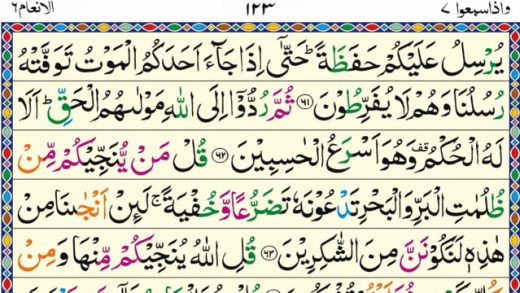 واذاسمعوا ٧ ١٢٣ الانعام ٦
يُرْسِلُ عَلَيْكُمْ حَفَظَةً ؕ حَتّٰۤى اِذَا جَآءَ اَحَدَكُمُ الْمَوْتُ تَوَفَّتْهُ
رُسُلُنَا وَهُمْ لَا يُفَرِّطُوْنَ ﴿۶۱﴾ ثُمَّ رُدُّوْۤا اِلَى اللّٰهِ مَوْلٰىهُمُ الْحَقِّ ؕ اَلَا
لَهُ الْحُكْمُ ࣞ وَهُوَ اَسْرَعُ الْحٰسِبِيْنَ ﴿۶۲﴾ قُلْ مَنْ يُّنَجِّيْكُمْ مِّنْ
ظُلُمٰتِ الْبَرِّ وَالْبَحْرِ تَدْعُوْنَهٗ تَضَرُّعًا وَّخُفْيَةً ۚ لَئِنْ اَنْجٰىنَا مِنْ
هٰذِهٖ لَنَكُوْنَنَّ مِنَ الشّٰكِرِيْنَ ﴿۶۳﴾ قُلِ اللّٰهُ يُنَجِّيْكُمْ مِّنْهَا وَمِنْ